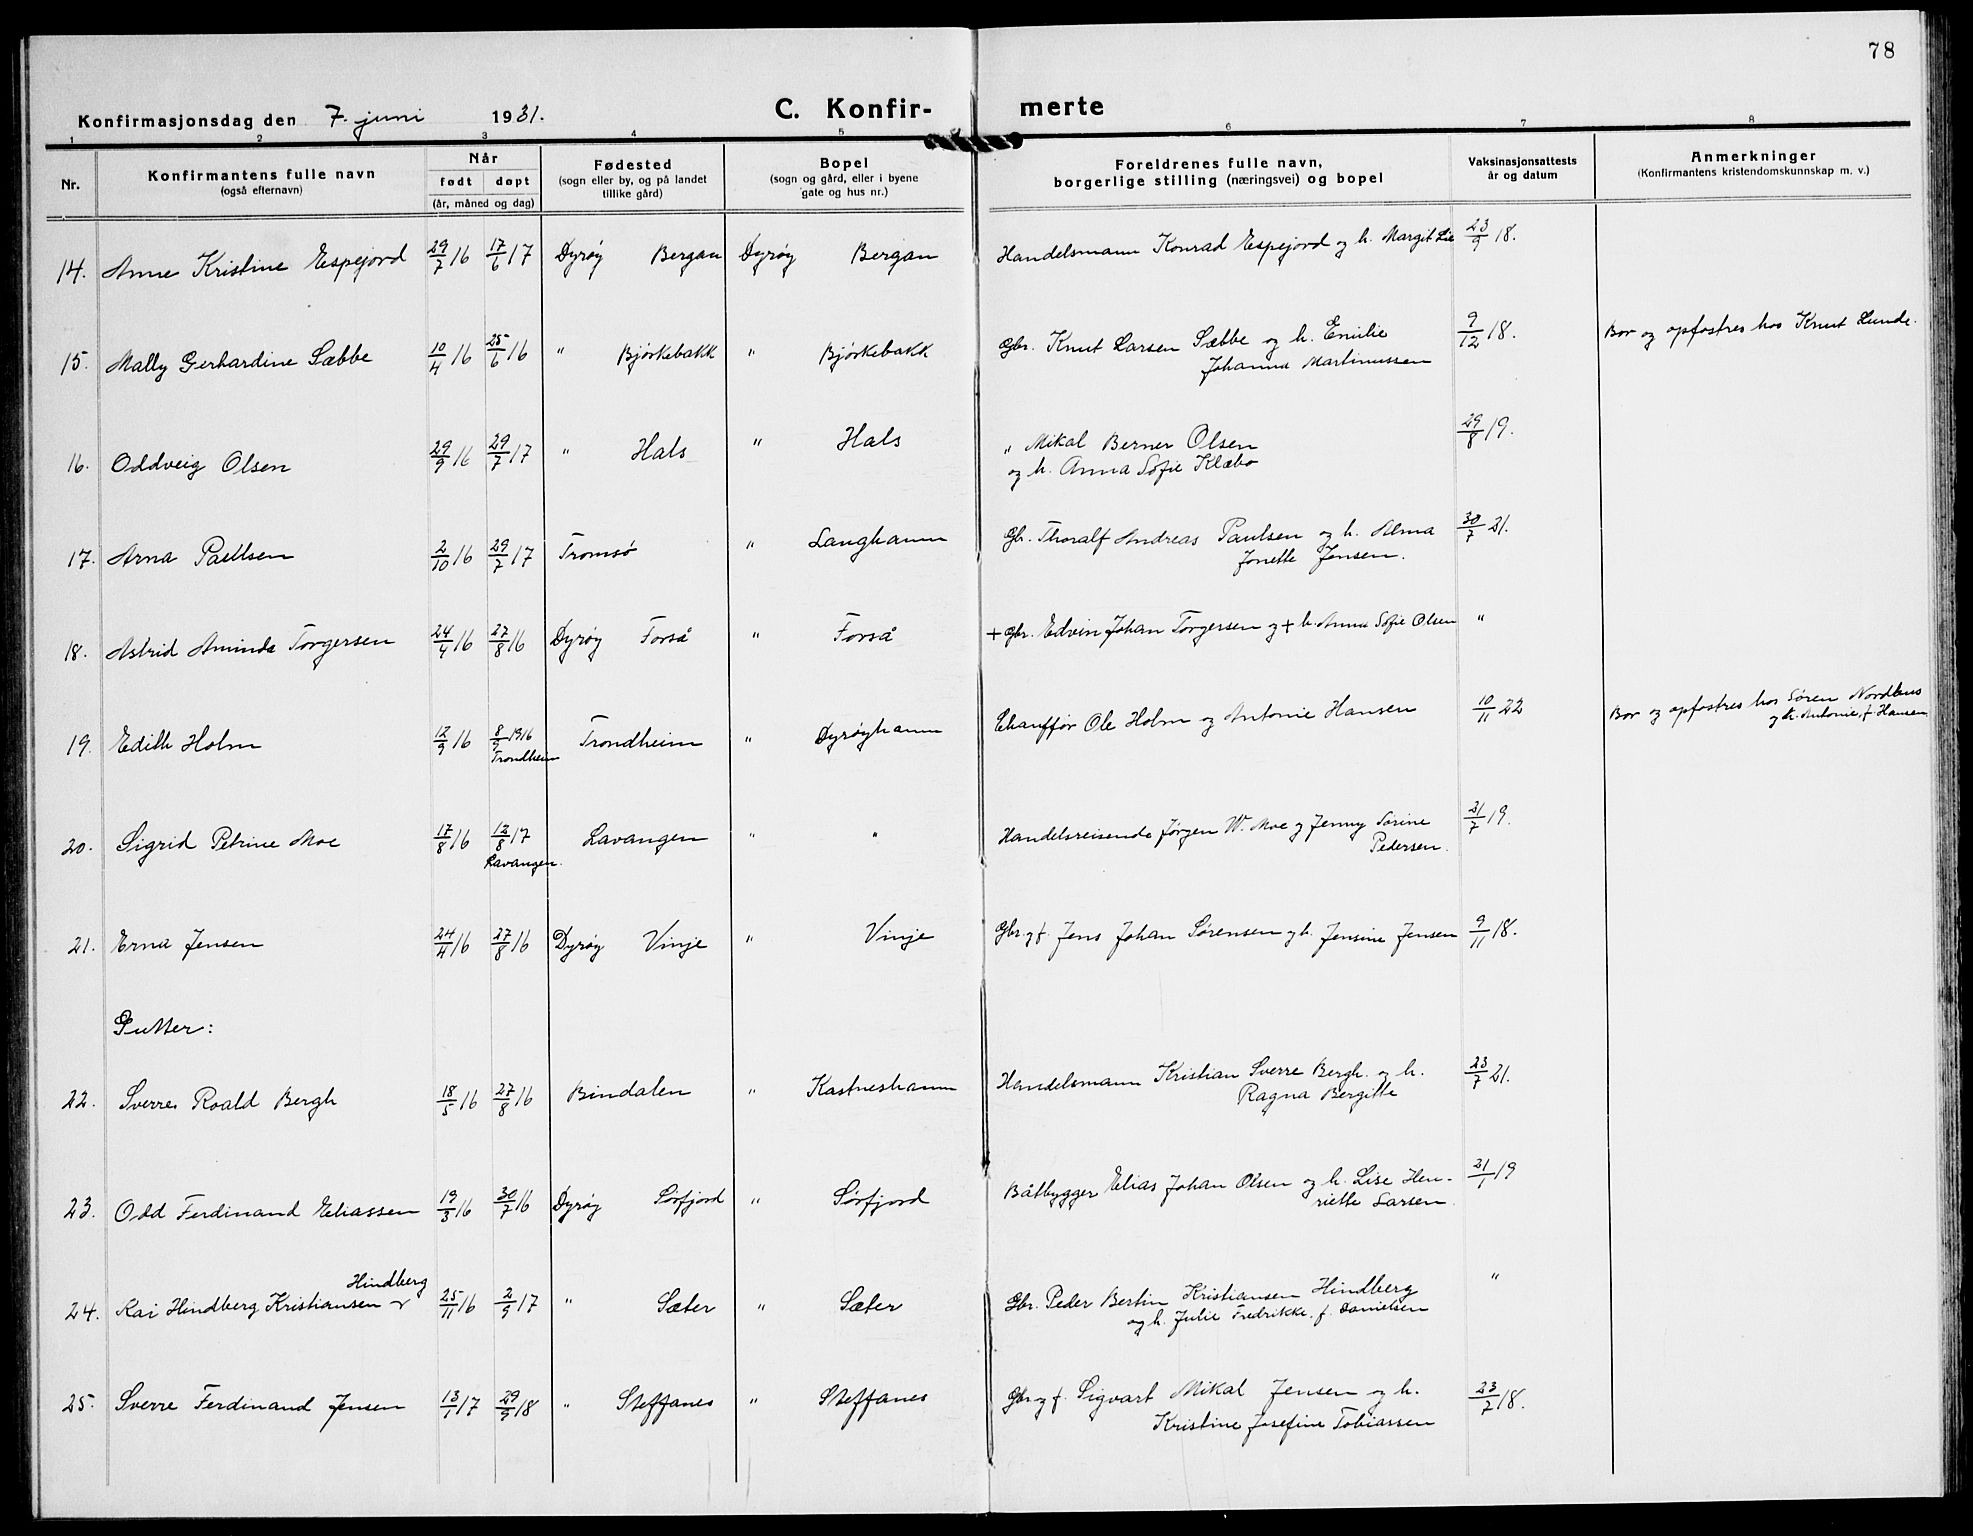 78
Konfirmasjonsdag den 7. juni 1931. C. Konfir- merte
1 2 3 4 5 6 7 8
Nr. Konfirmantens fulle navn (også efternavn) Når født døpt (år, måned og dag) Fødested (sogn eller by, og på landet tillike gård) Bopel (sogn og gård, eller i byene gate og hus nr.) Foreldrenes fulle navn, borgerlige stilling (næringsvei) og bopel Vaksinasjonsattests år og datum Anmerkninger (Konfirmantens kristendomskunnskap m. v.)
14. Anne Kristine Espejord 29/7 16 17/6 17 Dyrøy Bergan Dyrøy Bergan Handelsmann Konrad Espejord og h. Margit Lie 23/9 18.
15. Mally Gerhardine Sæbbe 10/4 16 25/6 16 " Bjørkebakk " Bjørkebakk Gbr. Knut Larsen Sæbbe og h. Emilie 9/12 18. Bor og opfostres hos Knut Lunde.
Johanna Martinussen
16. Oddveig Olsen 29/9 16 29/7 17 " Hals " Hals " Mikal Berner Olsen 29/8 19.
og h. Anna Sofie Klæbo
17. Arna Paulsen 2/10 16 29/7 17 Tromsø " Langhamn Gbr. Thoralf Andreas Paulsen og h. Alma 30/7 21.
Jonette Jensen.
18. Astrid Aminda Torgersen 24/4 16 27/8 16 Dyrøy Forså " Forså + Gbr. Edvin Johan Torgersen og + h. Anna Sofie Olsen "
19. Edith Holm 12/9 16 8/9 1916 Trondheim " Dyrøyhamn Chauffør Ole Holm og Antonie Hansen 10/11 22 Bor og opfostres hos Søren Nordhus
Trondheim og h. Antonie, f. Hansen
20. Sigrid Petrine Moe 17/8 16 12/8 17 Lavangen " " Handelsreisende Jørgen W. Moe og Jenny Sorine 31/7 19.
Lavangen. Pedersen.
21. Erna Jensen 24/4 16 27/8 16 Dyrøy Vinje " Vinje Gbr. og f. Jens Johan Sørensen og h. Jensine Jensen 9/11 18.
Gutter:
22. Sverre Roald Bergh 18/5 16 27/8 16 Bindalen " Kastneshamn Handelsmann Kristian Sverre Bergh og h. 23/7 21.
Ragna Bergitte
23. Odd Ferdinand Eliassen 19/3 16 30/7 16 Dyrøy Sørfjord " Sørfjord Båtbygger Elias Johan Olsen og h. Lise Hen- 31/1 19
riette Larsen.
Hindberg
24. Kai Hindberg Kristiansen 25/11 16 2/9 17 " Sæter " Sæter Gbr. Peder Bertin Kristiansen Hindberg "
og h. Julie Fredrikke, f. Danielsen
25. Sverre Ferdinand Jensen 13/1 17 29/9 18 " Steffanes " Steffanes Gbr. og f. Sigvart Mikal Jensen og h. 23/7 18.
Kristine Josefine Tobiassen